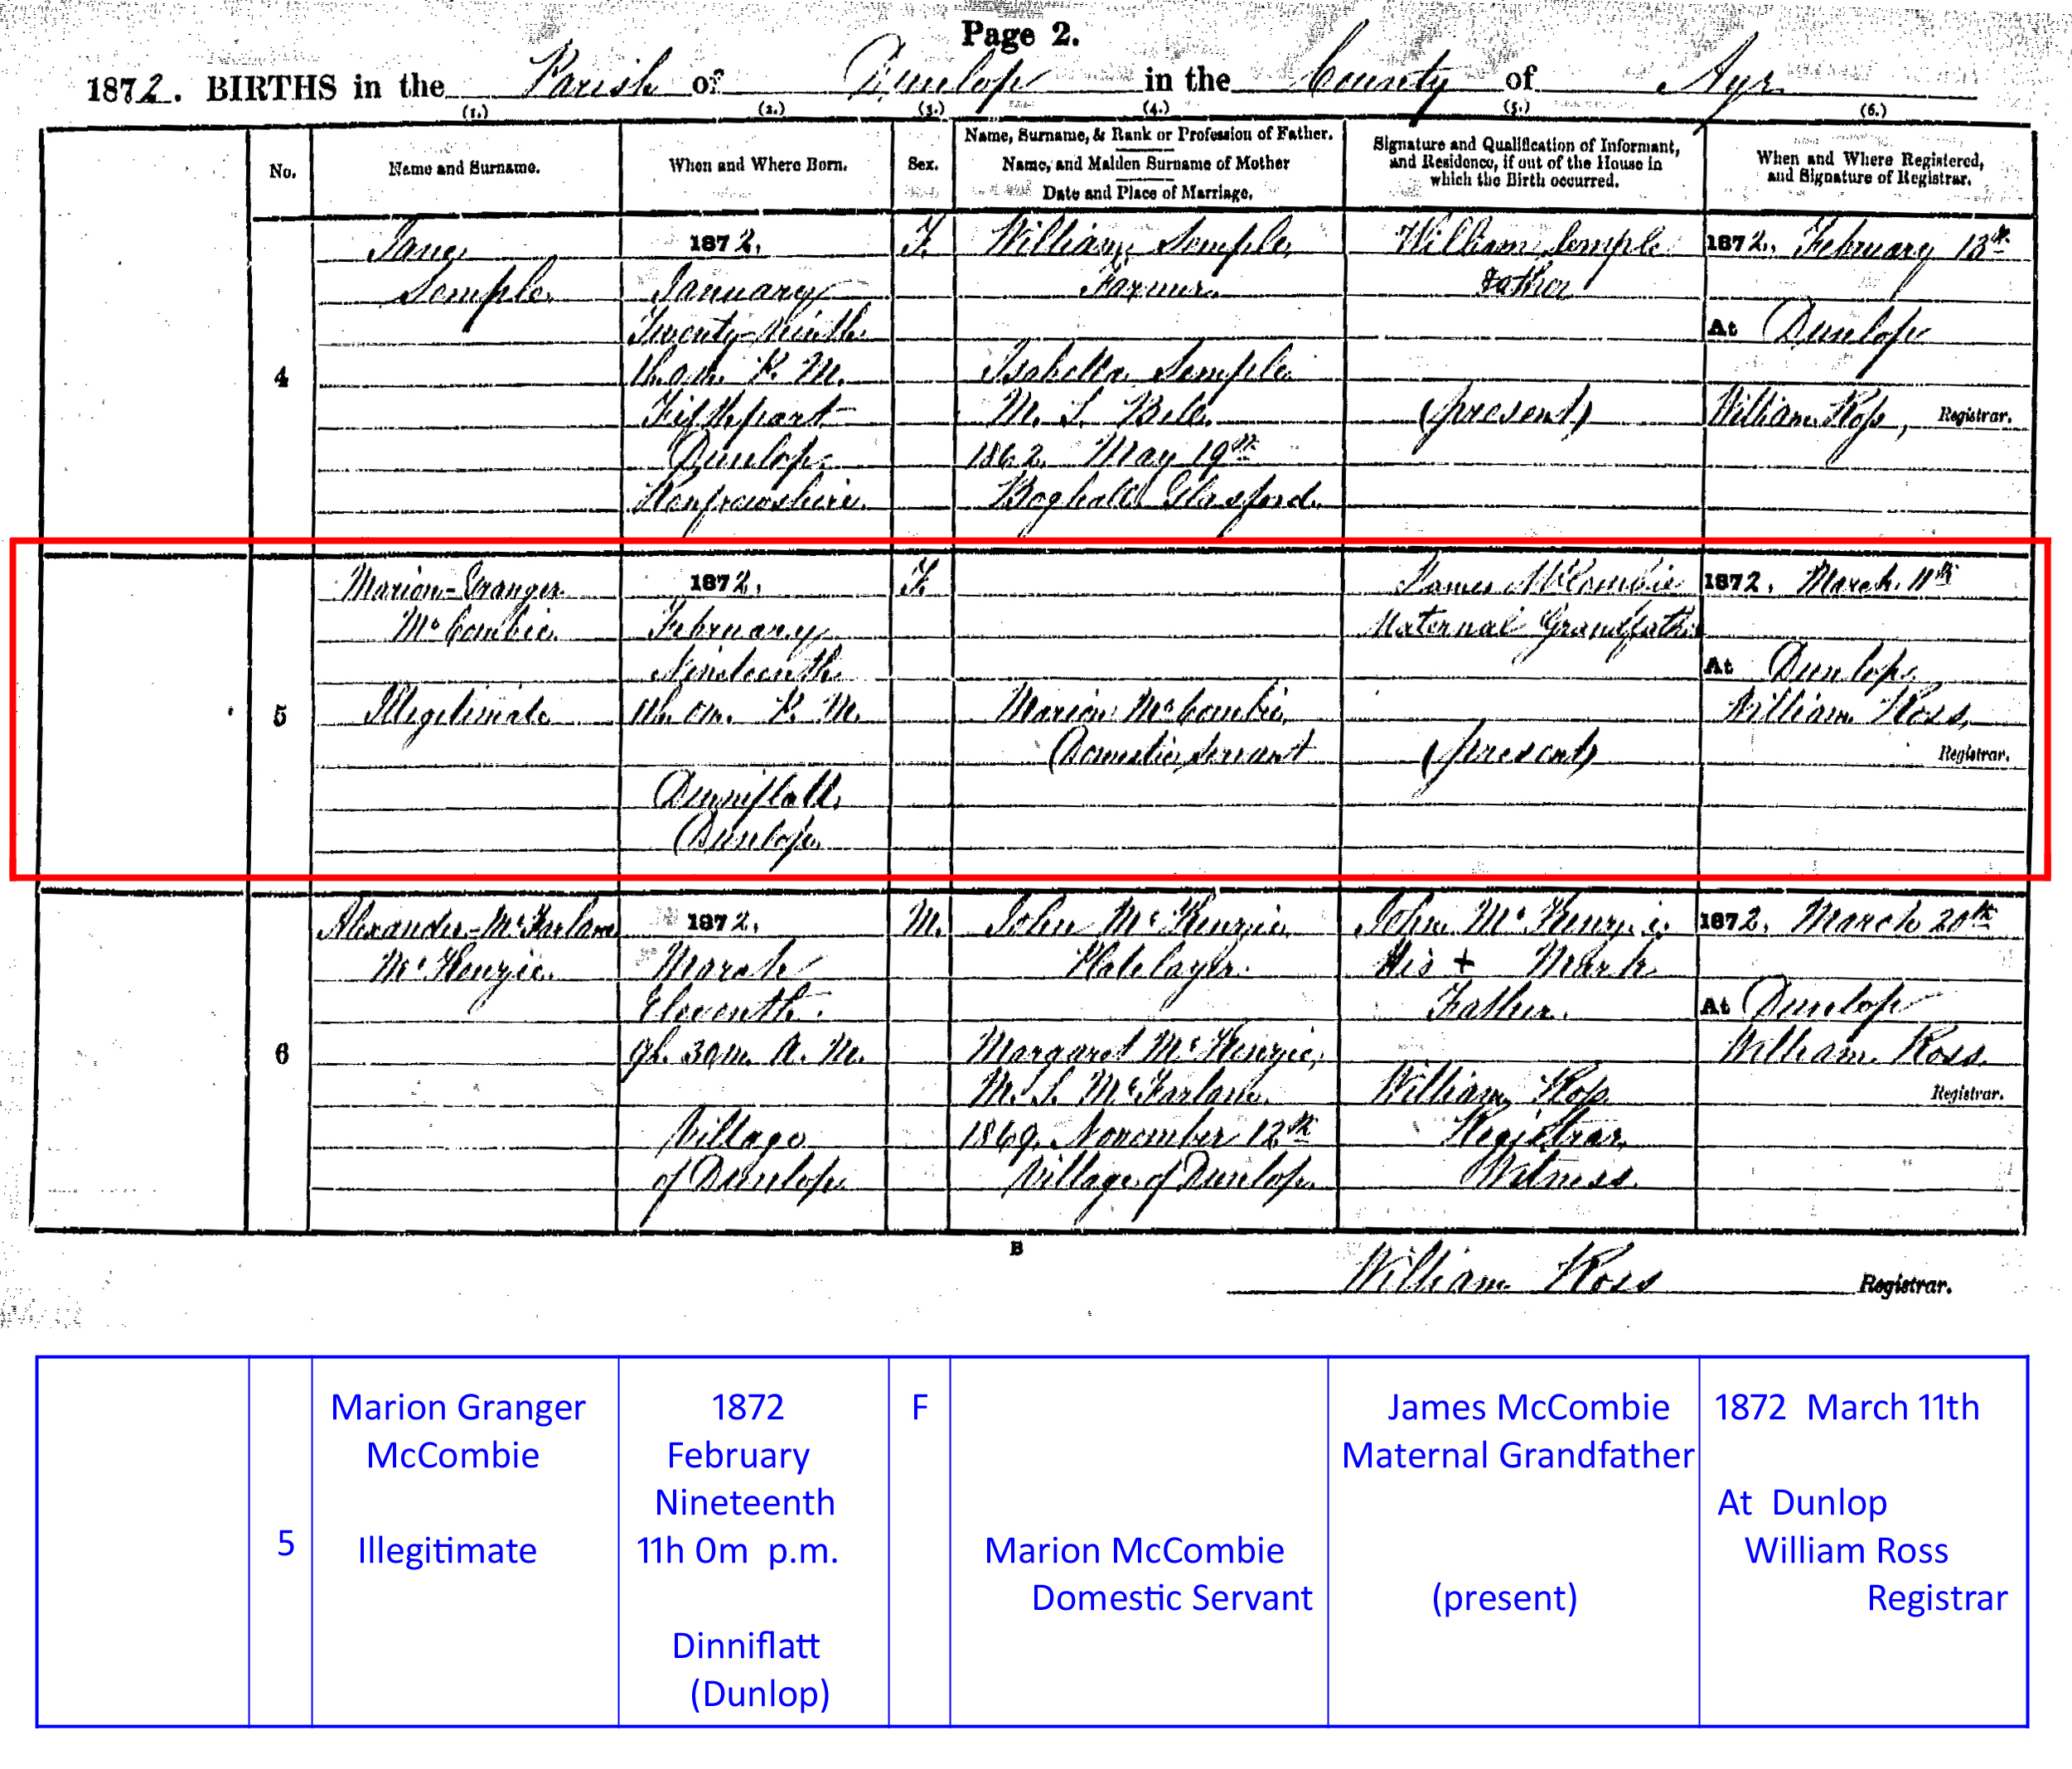 Page 2.
1872. BIRTHS in the Parish of Dunlop in the County of Ayr
(1.) (2.) (3.) (4.) (5.) (6.)
No.
Name and Surname.
When and Where Born.
Sex.
Name, Surname, & Rank or Profession of Father.
Name, and Maiden Surname of Mother
Date and Place of Marriage.
Signature and Qualification of Informant,
and Residence, if out of the House in
which the Birth occurred.
When and Where Registered,
and Signature of Registrar.
4
Jane
Semple
1872.
January
Twenty-Ninth
1h. 0m. P. M.
Fifthpart
Dunlop
Renfrewshire
F.
William Semple
Farmer
Isabella Semple
M. S. Bell
1862. May 19th
Boghall Glasford
William Semple
Father
(present)
1872. February 13th
At Dunlop
William Ross, Registrar.
5
Marion-Granger
McCombie
Illegitimate
1872.
February
Nineteenth
11h. 0m. P. M.
Dinniflatt
Dunlop
F.
Marion McCombie
Domestic Servant
James McCombie
Maternal Grandfather
(present)
1872. March 11th
At Dunlop
William Ross
Registrar.
6
Alexander-McFarlane
McKenzie
1872.
March
Eleventh
9h. 30m. A. M.
Village
of Dunlop
M.
John McKenzie
Platelayer
Margaret McKenzie,
M. S. McFarlane
1869. November 12th
Village of Dunlop
John McKenzie
His + Mark
Father.
William Ross
Registrar
Witness
1872. March 20th
At Dunlop
William Ross
Registrar.
B
William Ross Registrar.
5
Marion Granger
McCombie
Illegitimate
1872
February
Nineteenth
11h 0m p.m.
Dinniflatt
(Dunlop)
F
Marion McCombie
Domestic Servant
James McCombie
Maternal Grandfather
(present)
1872 March 11th
At Dunlop
William Ross
Registrar